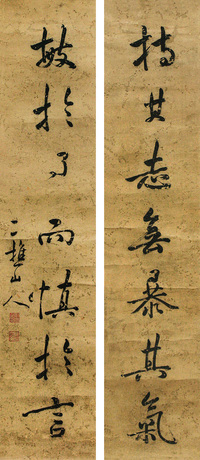 持其志無暴其氣
敏於事而慎於言
二樵山人